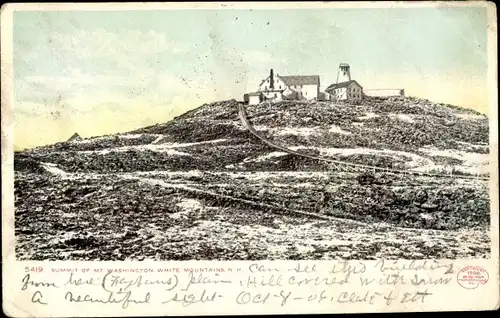 5419. SUMMIT OF MT. WASHINGTON, WHITE MOUNTAINS, N.H. Can see this building
from here (Haytans) plain, Hill covered with snow
a beautiful sight Oct 8 - 06, Clate & Ett